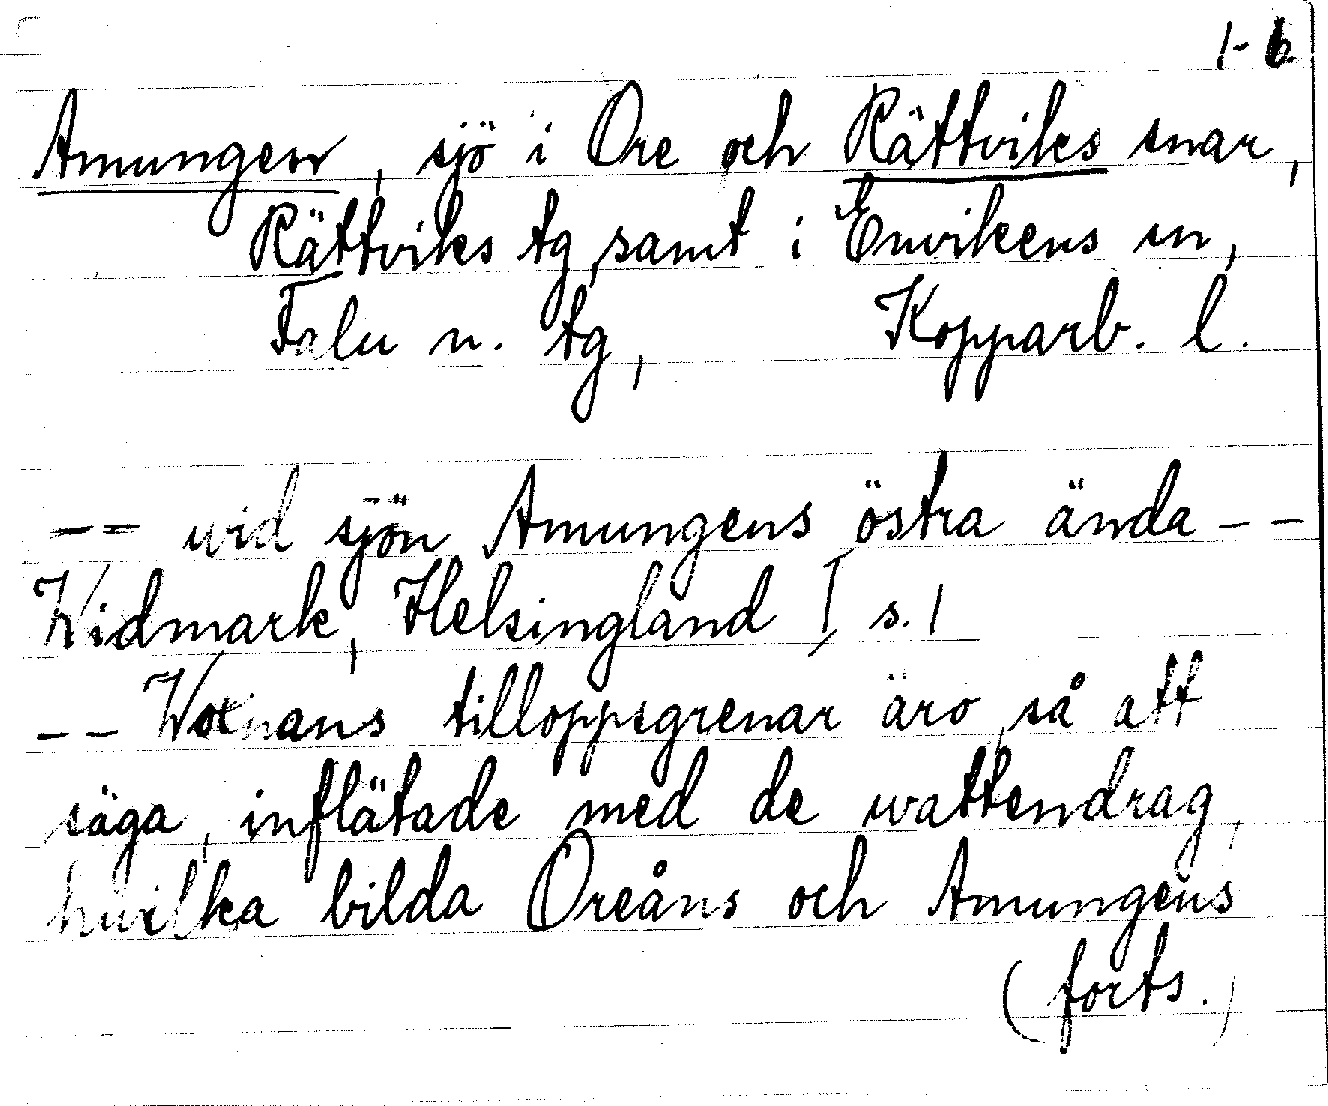 1-6
Amungen, sjö i Ore och Rättviks snar,
Rättviks tg, samt i Envikens sn,
Falu n. tg, Kopparb. l.
-- wid sjön Amungens östra ända --
Widmark, Helsingland I s. 1
-- Woxnans tilloppsgrenar äro, så att
säga, inflätade med de wattendrag,
hwilka bilda Oreåns och Amungens
(forts.)